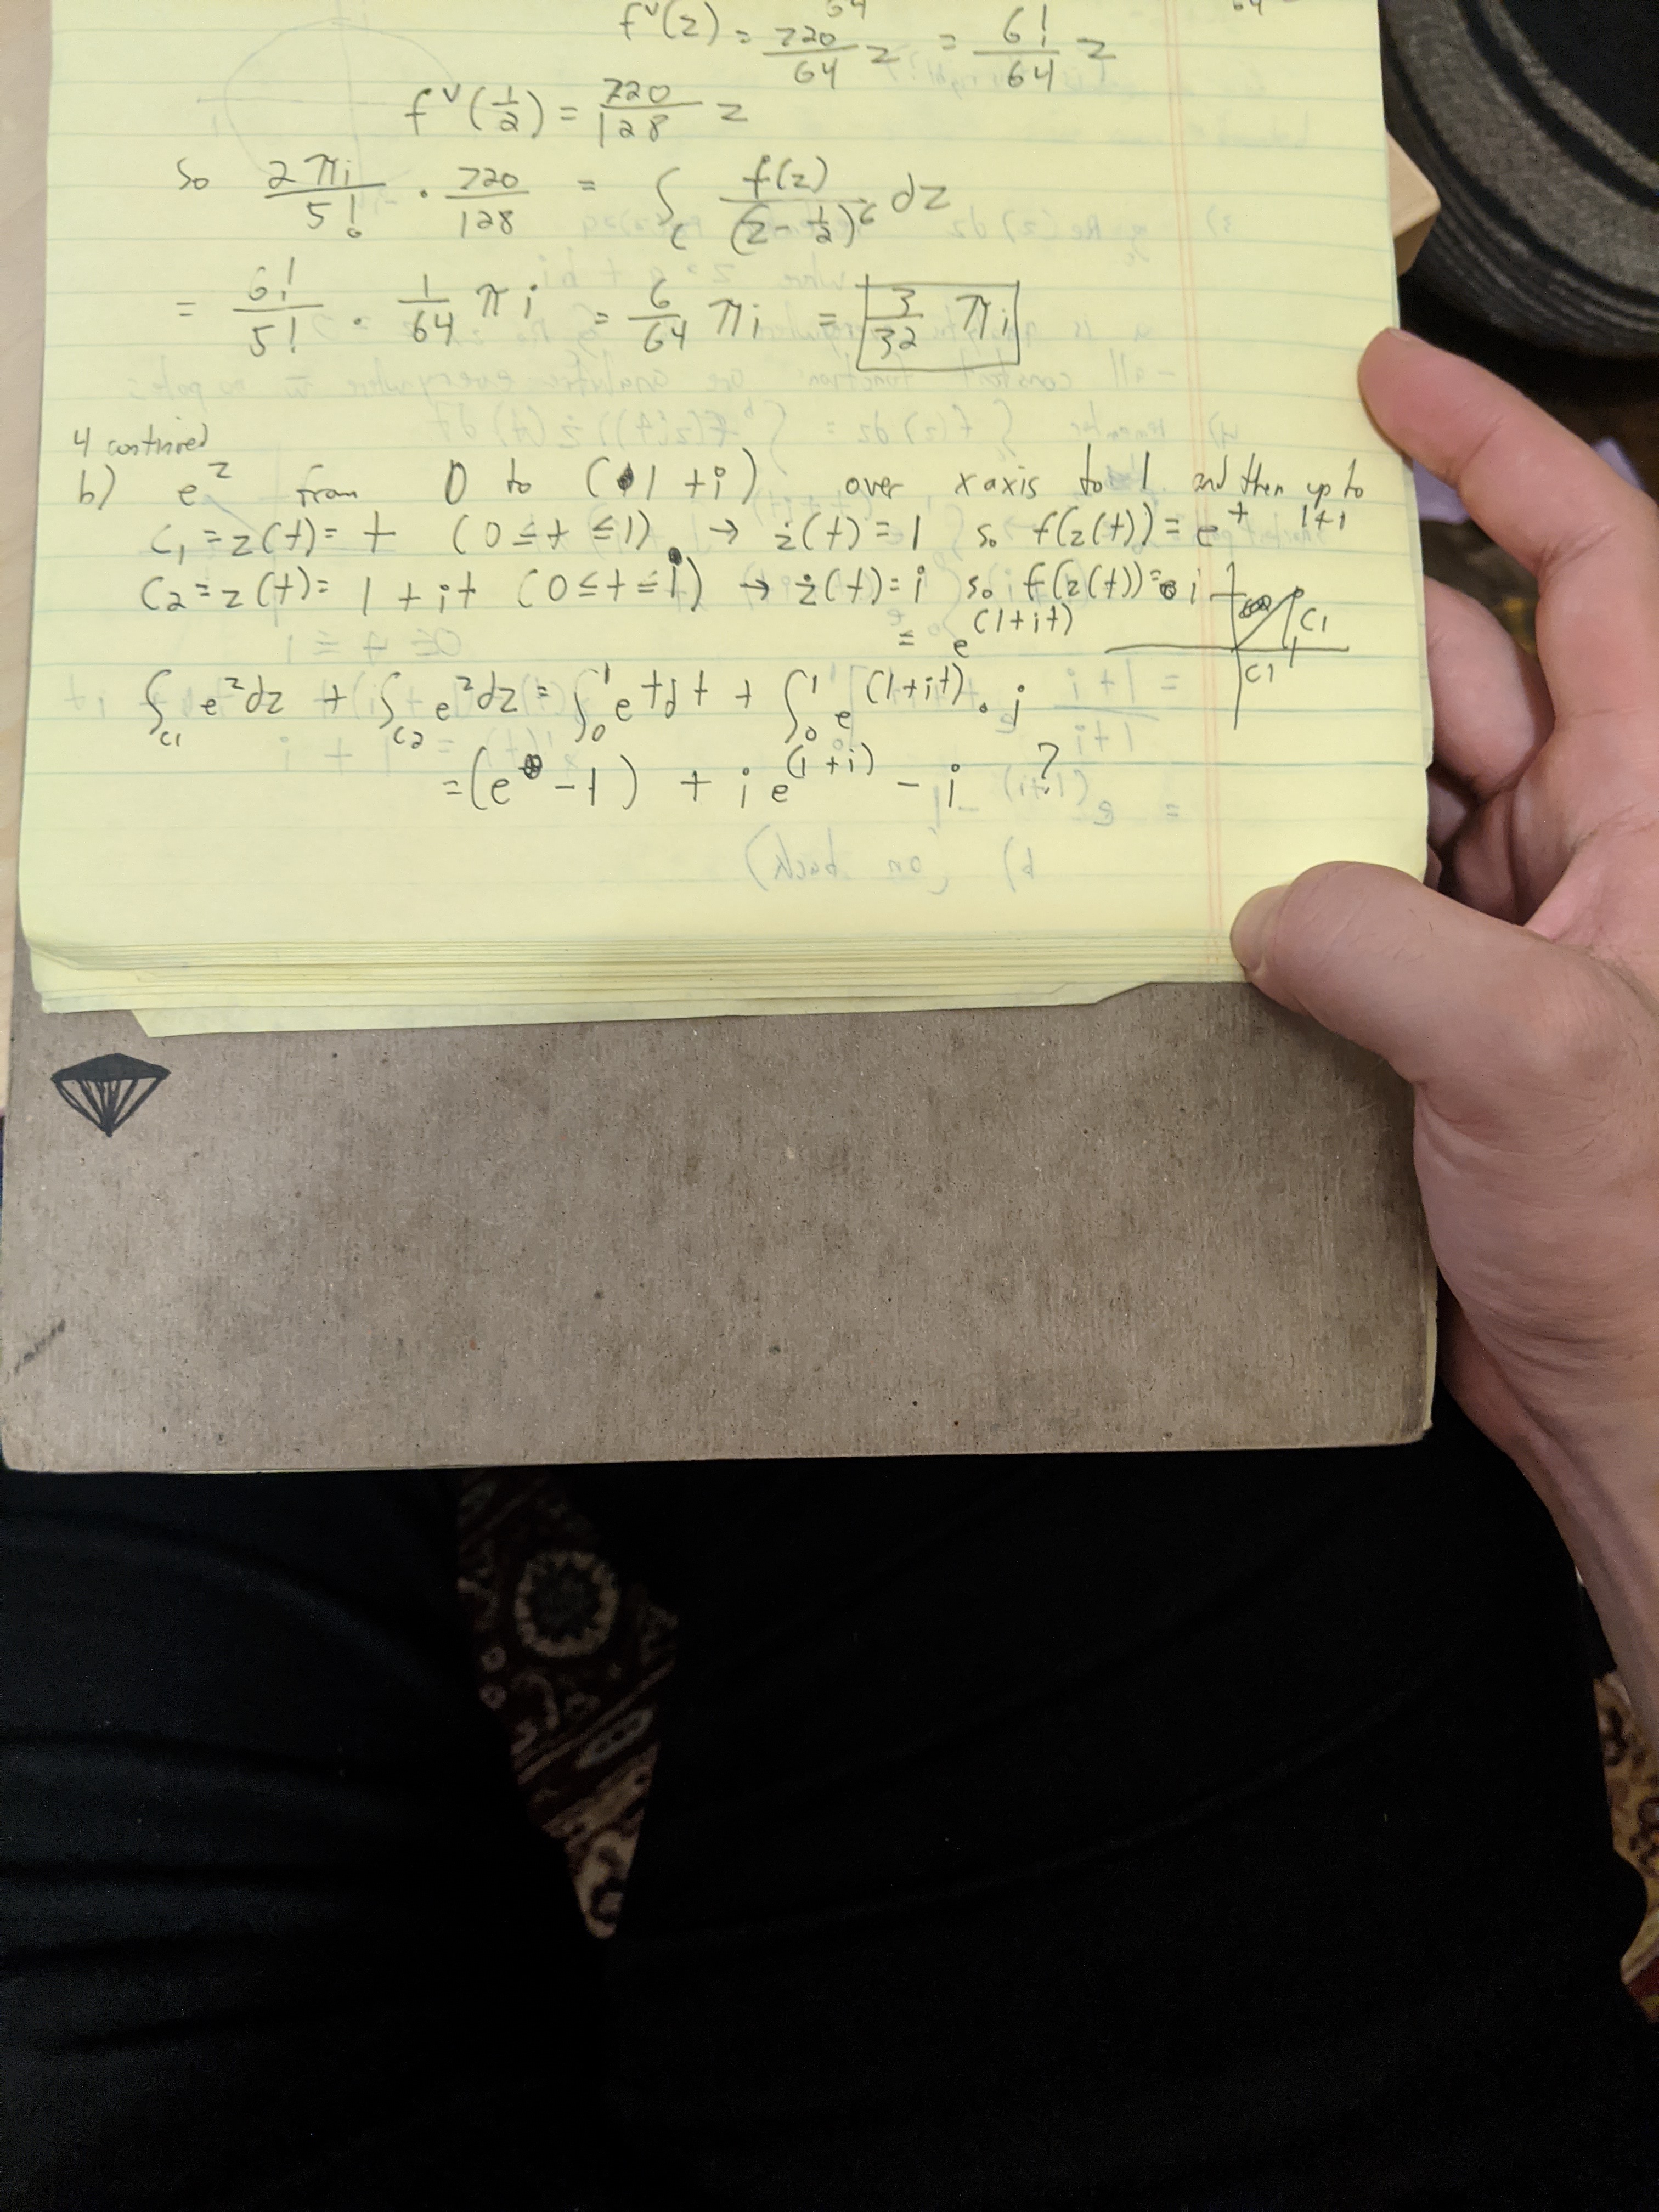 64
64
f^v(z) = 720/64 z = 6!/64 z
f^v(1/2) = 720/128 z
So 2πi/5! · 720/128 = ∫_C f(z)/(z - 1/2)^6 dz
= 6!/5! · 1/64 πi = 6/64 πi = 3/32 πi
4 continued
b) e^z from 0 to (1+i) over x axis to 1 and then up to 1+i
C1 = z(t) = t (0 ≤ t ≤ 1) → ż(t) = 1 so f(z(t)) = e^t
C2 = z(t) = 1 + it (0 ≤ t ≤ 1) → ż(t) = i so f(z(t)) = i
= e^(1+it)
C1
C1
∫_C1 e^z dz + ∫_C2 e^z dz = ∫_0^1 e^t dt + ∫_0^1 e^(1+it) · i
= (e - 1) + i e^(1+i) - i ?